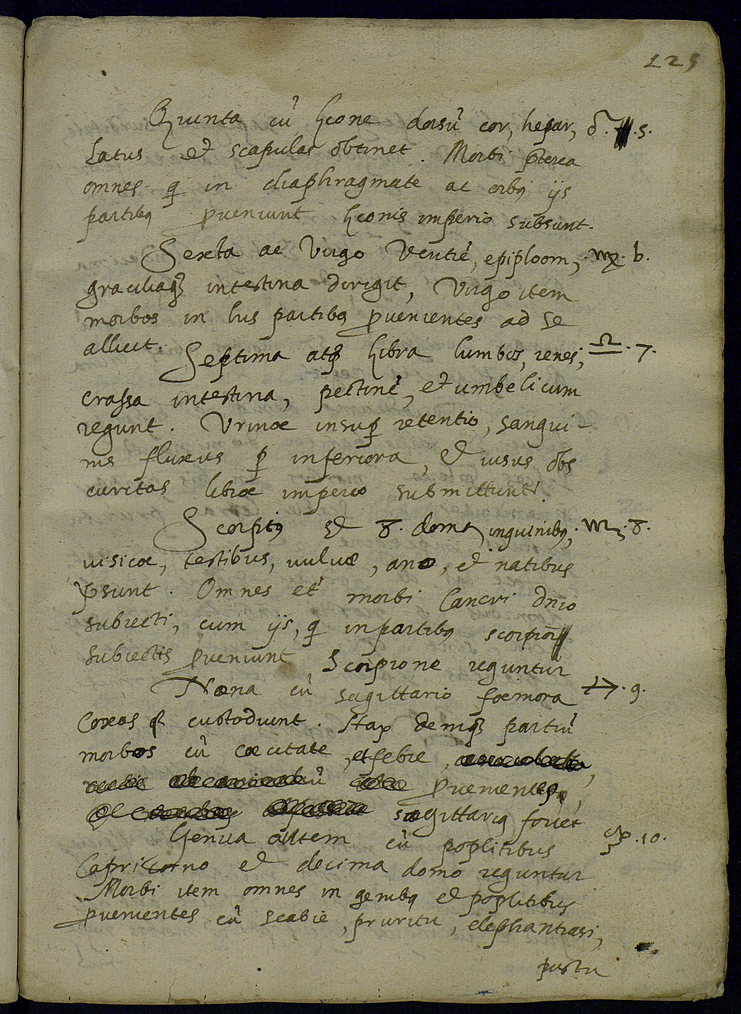 125
Quinta cũ Leone dorsũ cor, hepar, ♌. 5.
Latus et scapulas obtinet. Morbi p̃terea
omnes q̃ in diaphragmate ac orbq iis
partibq proveniunt Leonis imperio subsunt.
Sexta ac Virgo Ventrẽ, epiploom, ♍. 6.
graciliaq intestina dirigit, Virgo item
morbos in his partibq provenientes ad se
allicit.
Septima atq Libra lumbos, renes, ♎. 7.
crassa intestina, pectinẽ, et umbelicum
regunt. Urinae insup retentio, sangui-
nis fluxus p inferiora, et visus obs
curitas librae imperio submittunt.
Scorpiq et 8. doma, inguinibq, ♏. 8.
visicae, testibus, vulvae, ano, et natibus
p̃sunt. Omnes et morbi Cancri dñio
subiecti, cum iis, q̃ in partibq scorpion
subiectis proveniunt Scorpione reguntur
Nona cũ sagittario foemora ♐. 9.
Coxas q custodiunt. Hap demq partiũ
morbos cũ caecitate, et febre,
provenientes,
sagittariq fovet
Genua autem cũ poplitibus ♑. 10.
Capricorno et decima domo reguntur
Morbi item omnes in genibq et poplitibus
provenientes cũ scabie, pruritu, elephantiasi,
pustu